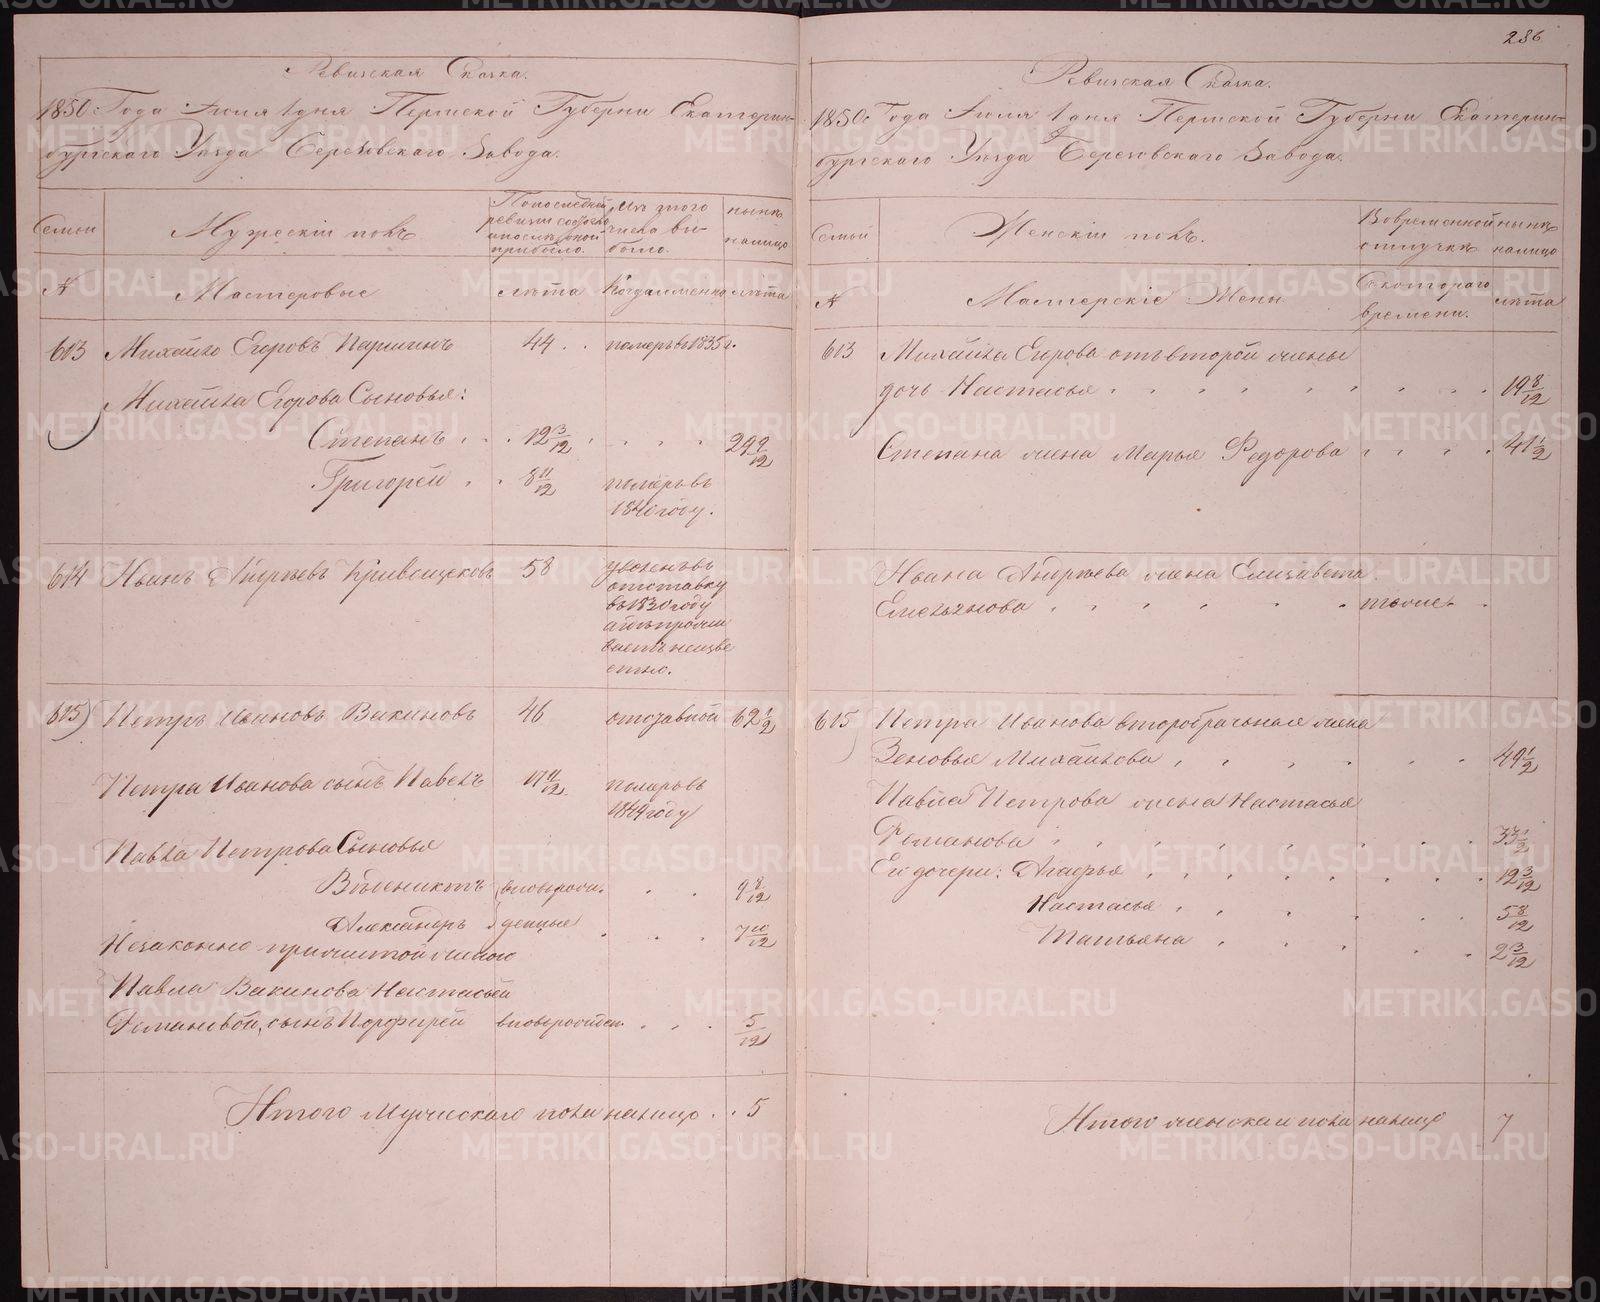 286
Ревизская Сказка.
1850 Года Июля 1 дня Пермской Губерни Екатерин-
бургскаго Уезда Березовскаго Завода.
Семьи
Мужескій полъ
По последней
ревизіи состояло
и после оной
прибыло.
Изъ того
числа вы-
было.
ныне
налицо
N
Мастеровые
лѣта
Когда именно
лѣта
613 Михайло Егоровъ Паршинъ 44 . . померъ в 1835 г.
Михайла Егорова Сыновья:
Степанъ . . . 12 3/12 . . . . 29 9/12
Григорей . . 8 11/12 померъ въ
1840 году.
614 Иванъ Андреевъ Кривощековъ 58 уволенъ въ
отставку
въ 1830 году
а где прожи
ваетъ неизве
стно.
615 Петръ Ивановъ Вакиновъ 46 отставной 62 1/2
Петра Иванова сынъ Павелъ 17 11/12 померъ въ
1849 году
Павла Петрова Сыновья
вновь рож- . . 9 8/12
Александръ денные . . . 7 10/12
Незаконно прижитой женою
Павла Вакинова Настасьей
Романовой, сынъ Порфирей вновь рожден. . . . 5/12
Итого Мужескаго пола налицо . . 5
Ревизская Сказка.
1850 Года Июля 1 дня Пермской Губерни Екатерин-
бургскаго Уезда Березовскаго Завода.
Семьи
Женскій полъ.
Во временной
отлучкѣ
ныне
налицо
N
Мастерскіе Жены
Съ котораго
времени.
лѣта
613 Михайла Егорова отъ второй жены
дочь Настасья . . . . . . . . . 19 8/12
Степана жена Марья Федорова . . . . 41 1/2
Ивана Андреева жена Елизавета
Емельянова . . . . . . тоже .
615 Петра Иванова второбрачная жена
Зеновья Михайлова . . . . . . 49 1/2
Павла Петрова жена Настасья
Романова . . . . . . . . 33 1/2
Его дочери: Агафья . . . . . . . 12 3/12
Настасья . . . . . . 5 8/12
Татьяна . . . . . . 2 3/12
Итого женскаго пола налицо 7
METRIKI.GASO-URAL.RU